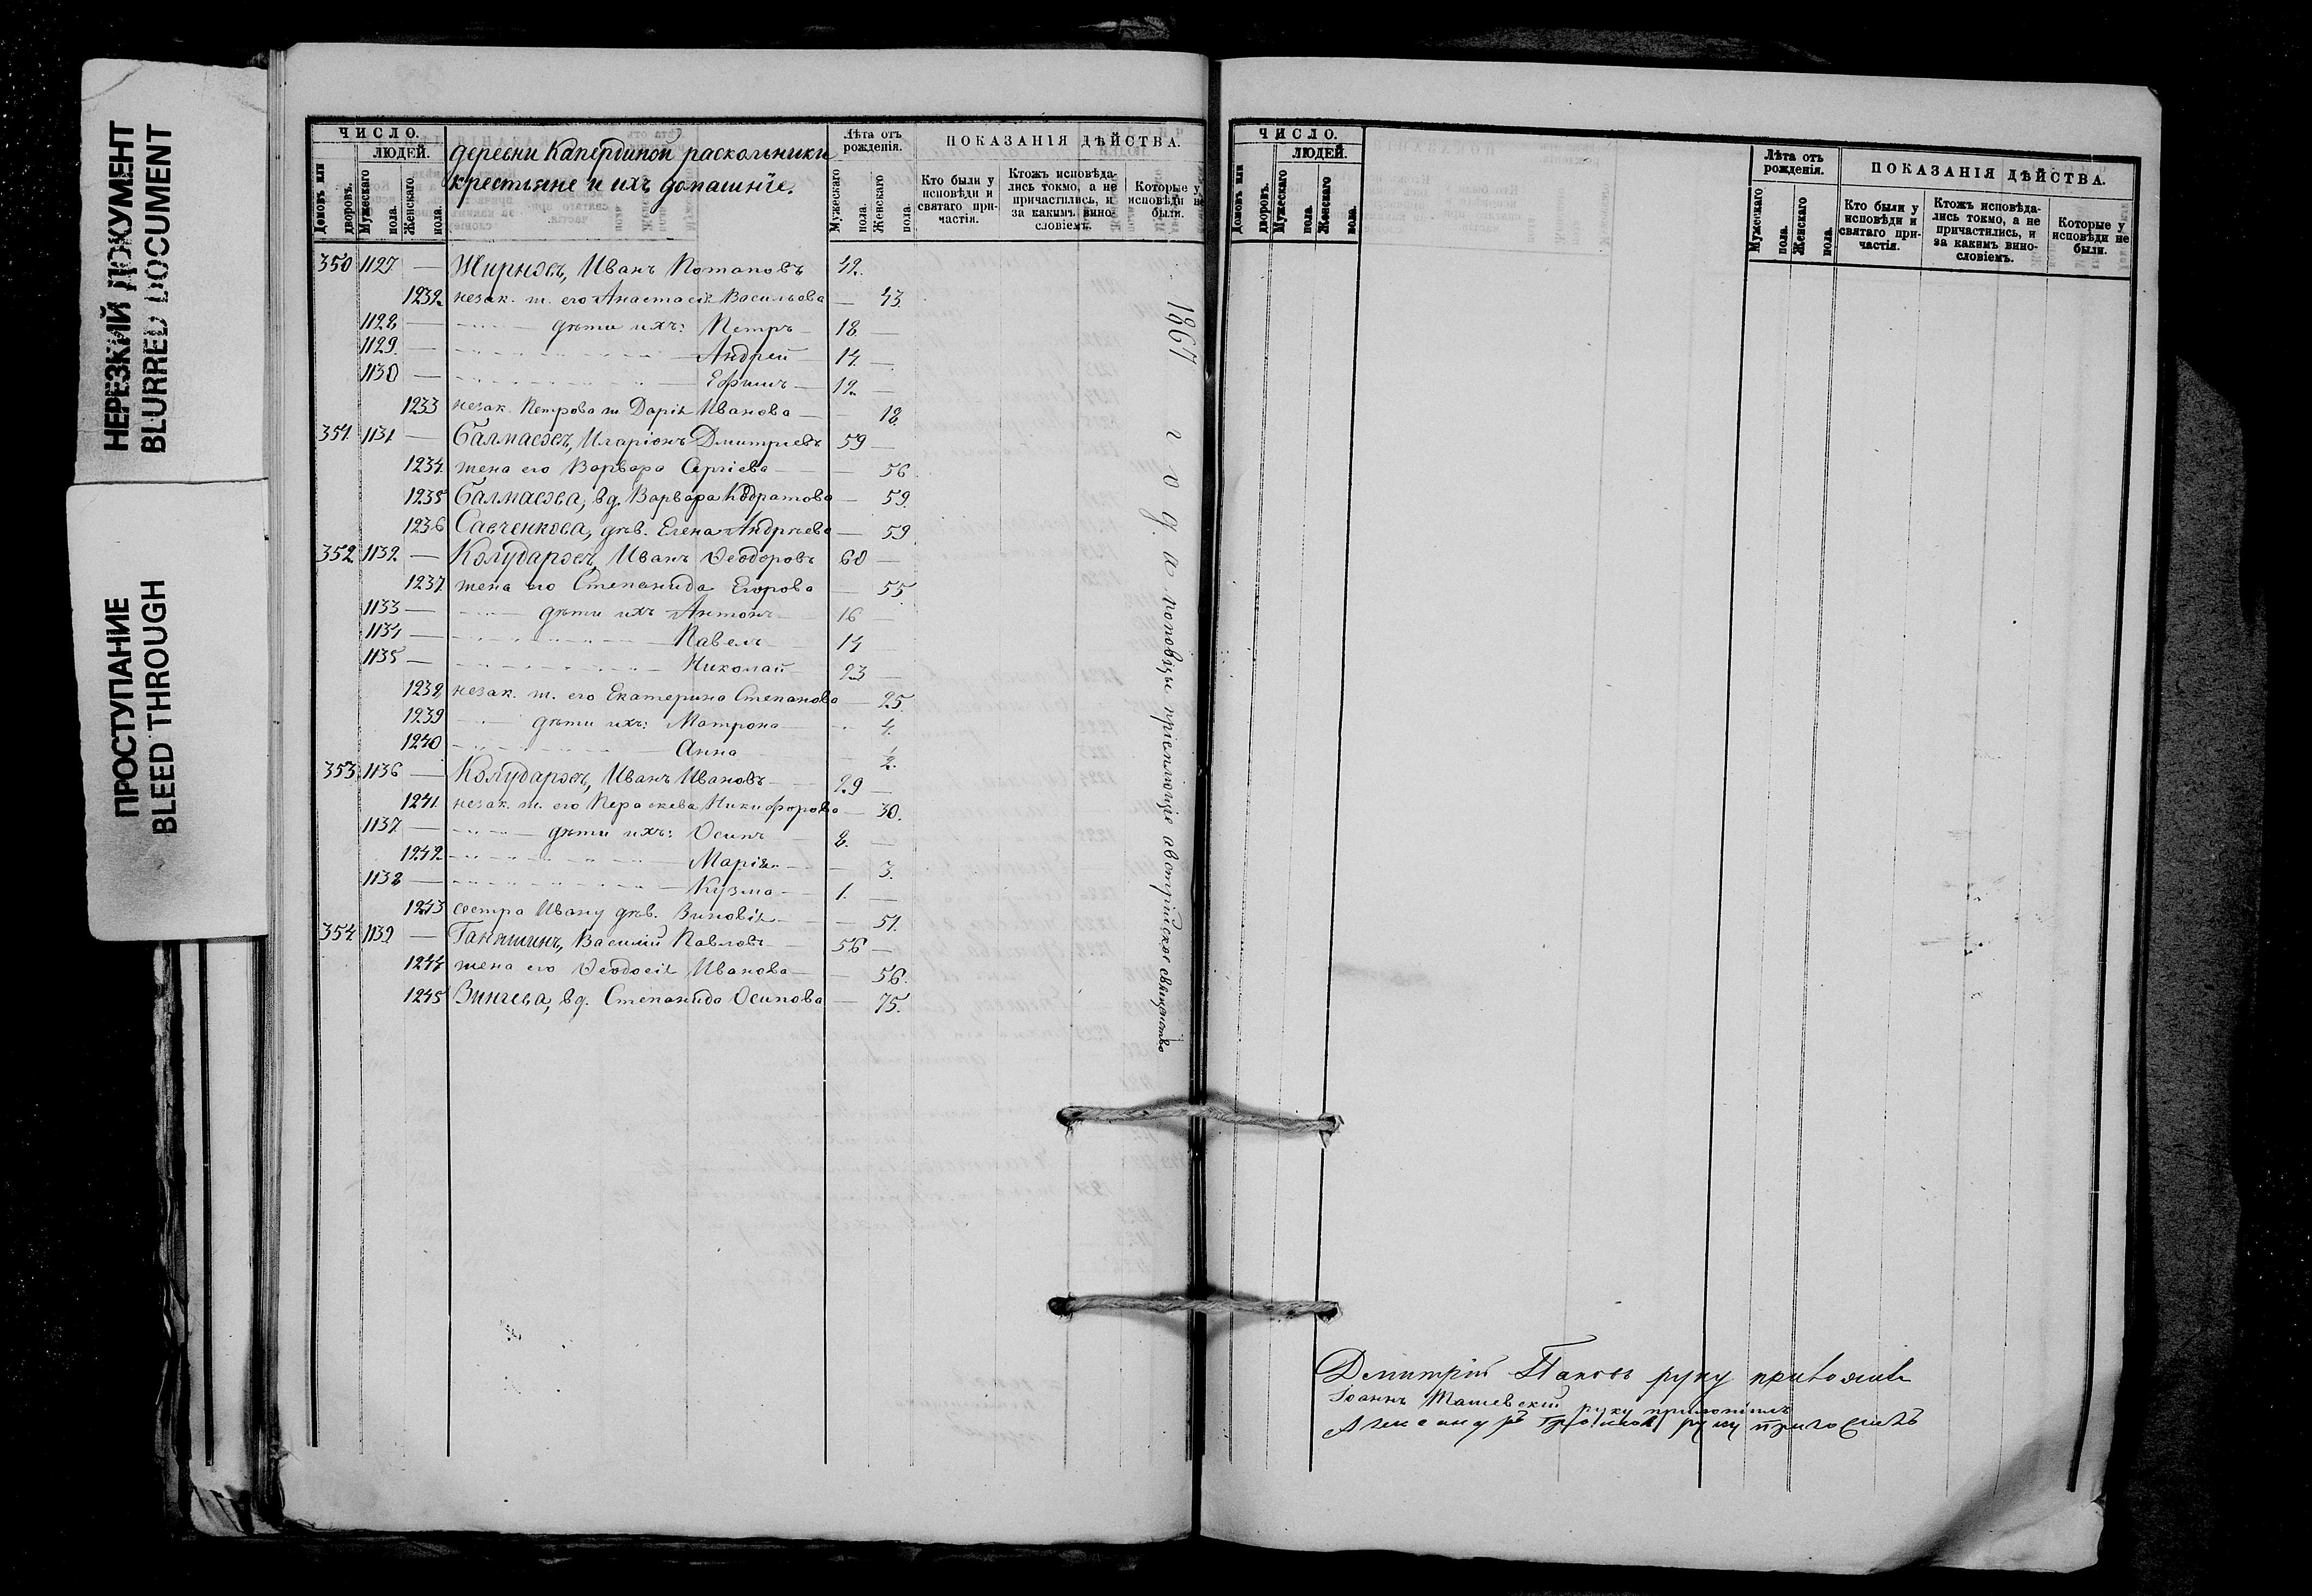 НЕРЕЗКИЙ ДОКУМЕНТ
BLURRED DOCUMENT
ПРОСТУПАНИЕ
BLEED THROUGH
ЧИСЛО.
ЛЮДЕЙ.
Домовъ или дворовъ.
Мужескаго пола.
Женскаго пола.
деревни Капердиной раскольники
крестьяне и ихъ домашнїе.
Лѣта отъ рожденія.
Мужескаго пола.
Женскаго пола.
ПОКАЗАНІЯ ДѢЙСТВА.
Кто были у исповѣди и святаго причастія.
Ктожъ исповѣдались токмо, а не причастились, и за какимъ винословіемъ.
Которые у исповѣди не были.
350 1127 — Жирновъ, Иванъ Потаповъ 42.
1232 незак. ж. его Анастасія Васильева — 43.
1128 — дѣти ихъ: Петръ 18 —
1129. — Андрей 14. —
1130 — Ефимъ 12. —
1233 незак. Петрова ж Дарія Иванова — 18.
351. 1131 — Балмасовъ, Иларіонъ Дмитріевъ 59 —
1234. жена его Варвара Сергіева — 56.
1235 Балмасова, вд. Варвара Кодратова — 59.
1236 Савченкова, дѣв. Елена Андреева — 59.
352 1132. — Колударовъ, Иванъ Ѳеодоровъ 60 —
1237. жена его Степанида Егорова — 55.
1133 — дѣти ихъ Антонъ 16 —
1134 — Павелъ 14 —
1135 — Николай 23 —
1238 незак. ж. его Екатерина Степанова — 25.
1239 дѣти ихъ: Матрона — 4.
1240 Анна — 2.
353. 1136 — Колударовъ, Иванъ Ивановъ 29 —
1241. незак. ж. его Параскева Никифорова — 30.
1137 — дѣти ихъ: Осипъ 8. —
1242. Марія — 3.
1138 — Кузма 1. —
1243 сестра Ивану дѣв. Зиновія — 51.
354. 1139 — Ганяшинъ, Василій Павловъ 56 —
1244 жена его Ѳеодосія Иванова — 56.
1245 Зингева, вд. Степанида Осипова — 75.
1867 года поповцы приемлющіе австрійское священство
ЧИСЛО.
ЛЮДЕЙ.
Домовъ или дворовъ.
Мужескаго пола.
Женскаго пола.
Лѣта отъ рожденія.
Мужескаго пола.
Женскаго пола.
ПОКАЗАНІЯ ДѢЙСТВА.
Кто были у исповѣди и святаго причастія.
Ктожъ исповѣдались токмо, а не причастились, и за какимъ винословіемъ.
Которые у исповѣди не были.
Дмитрій Паповъ руку приложилъ
Іоаннъ Машевскій руку приложилъ
Александръ руку приложилъ